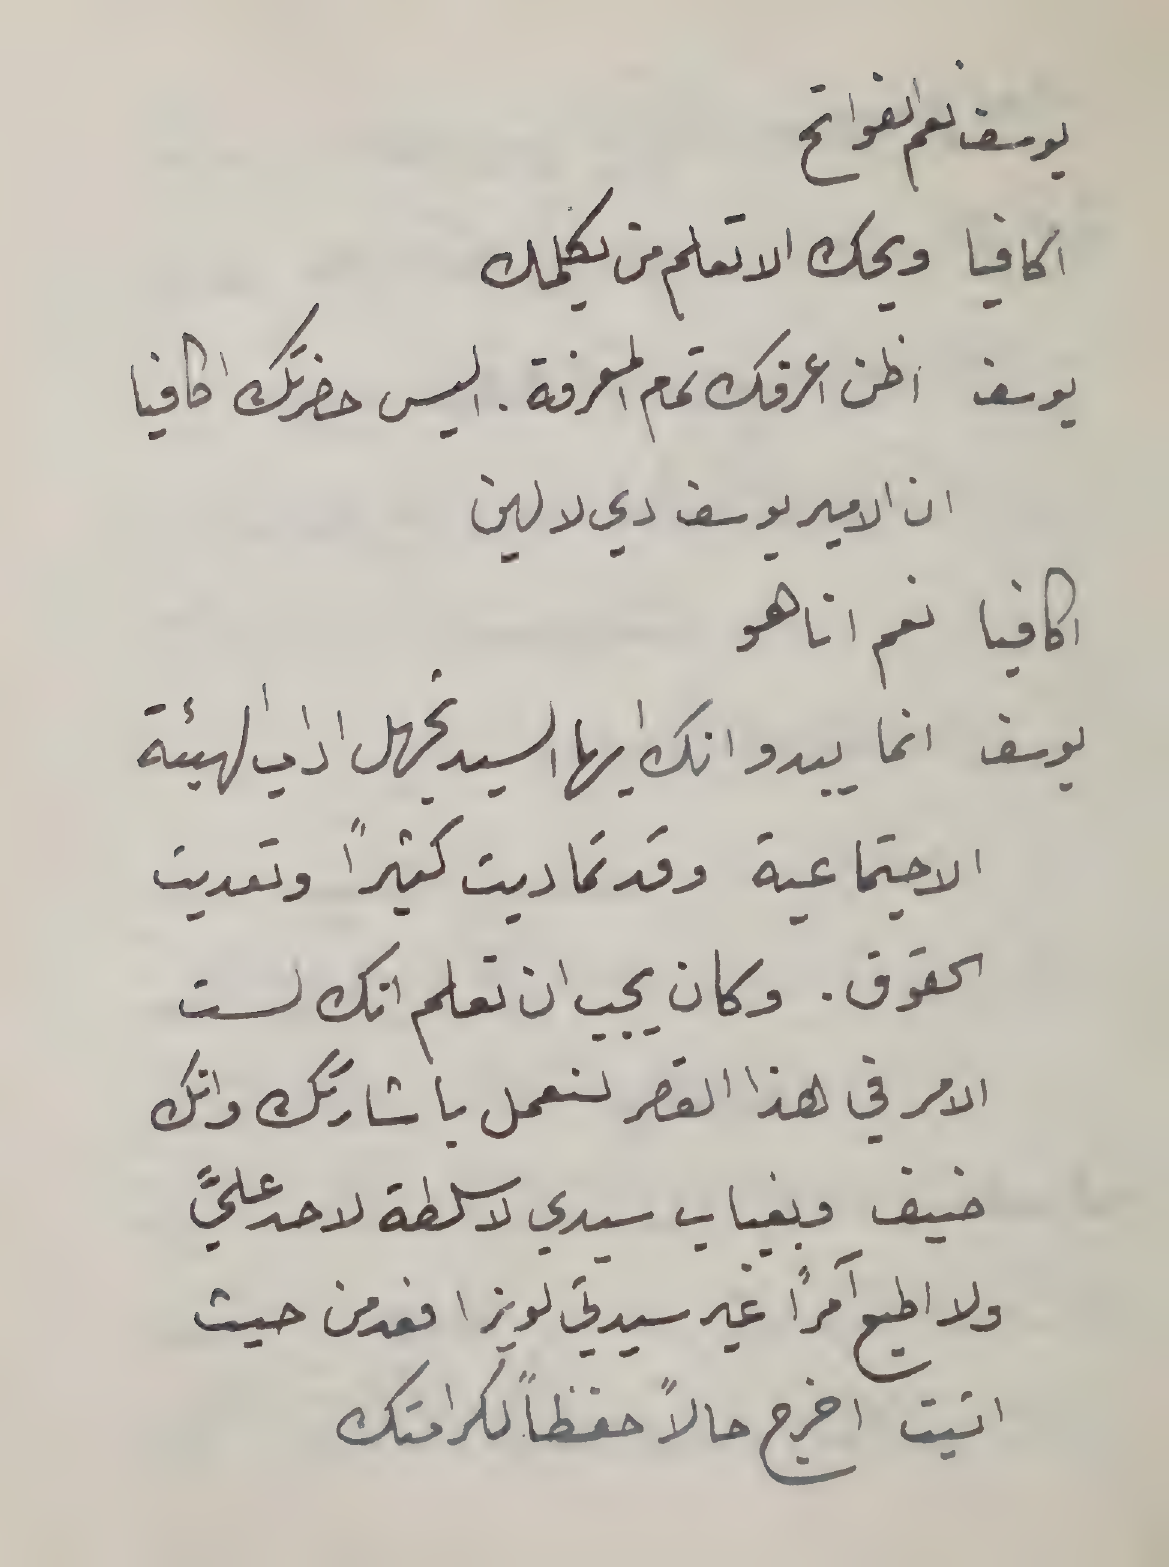 يوسف نعم الفواتح
اكافيا ويحك الا تعلم من يكلمك
يوسف اظن اعرفك تمام المعرفة . اليس حضرتك اكافيا
ان الامير يوسف دي لالين
اكافيا نعم انا هو
يوسف انما يبدو انك ايها السيد تجهل اداب الهيئة
الاجتماعية وقد تماديت كثيراً وتعديت
الحقوق . وكان يجب ان تعلم انك لست
الامر في هذا القصر لنعمل باشارتك وانك
ضيف وبغياب سيدي لا سلطة لاحد عليَّ
ولا اطيع آمراً غير سيدتي لويزا فعد من حيث
اتيت اخرج حالاً حفظاً لكرامتك